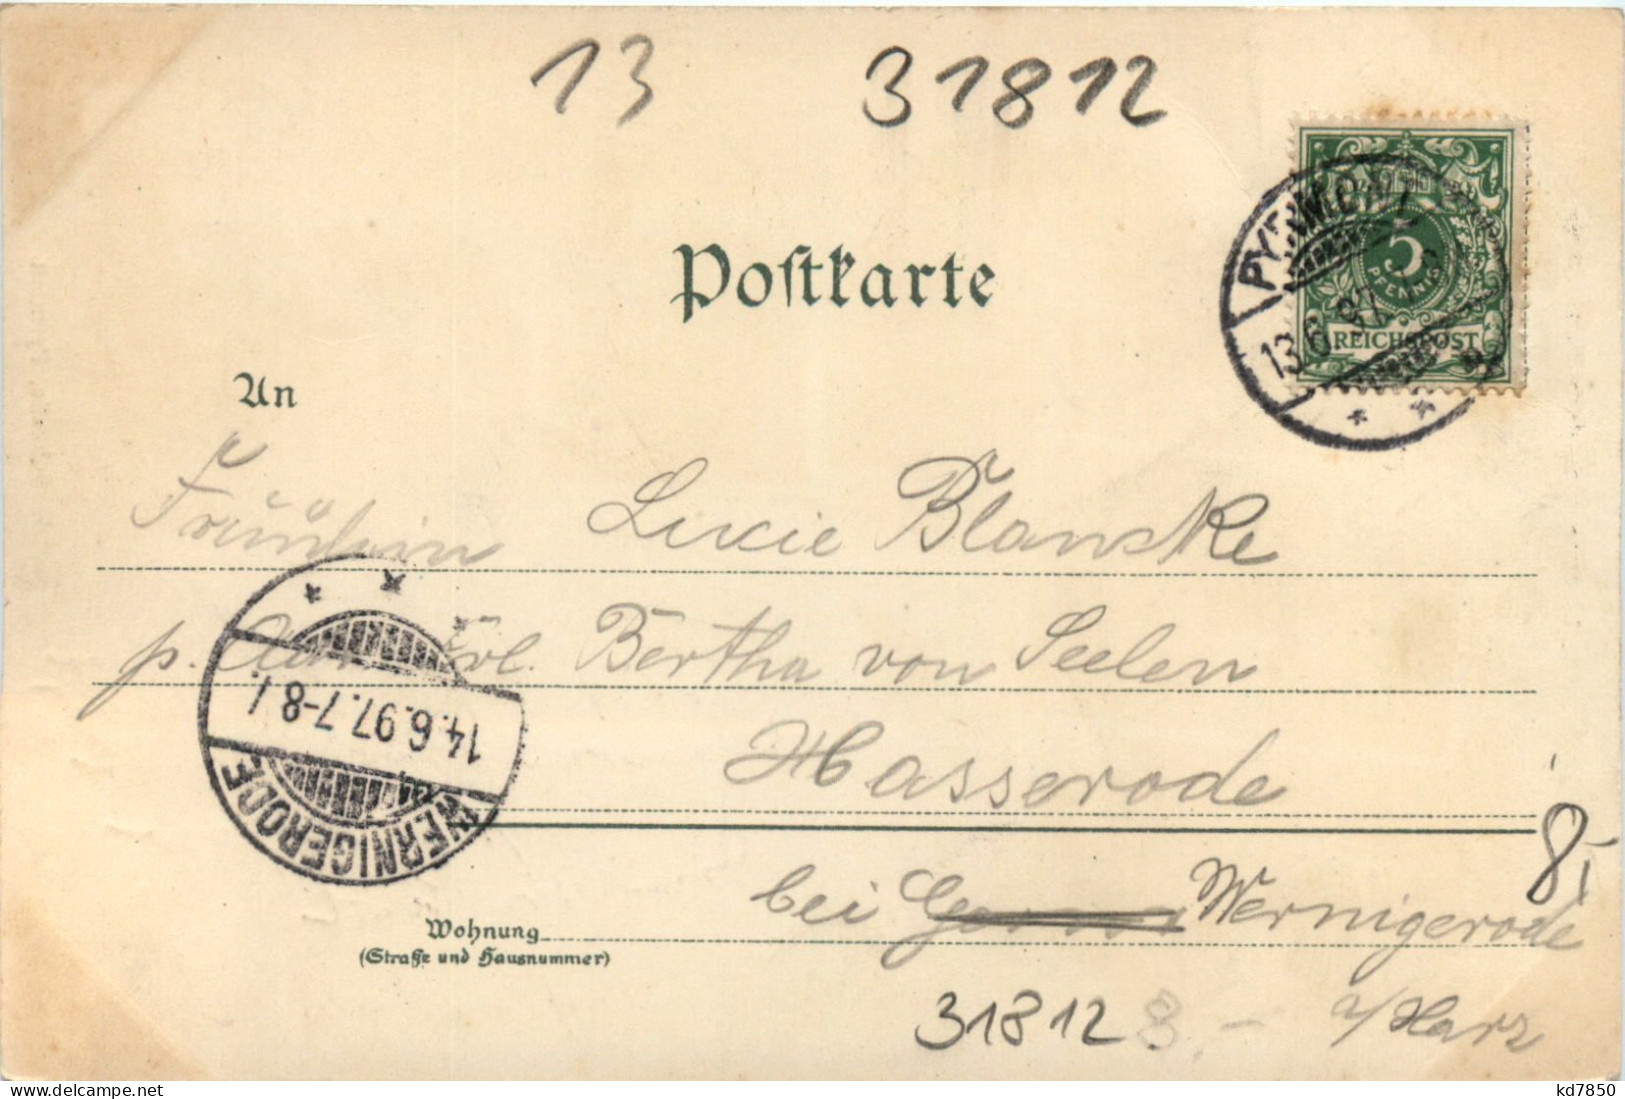 13 31812
PYRMONT
13.6.97
5
PFENNIG
REICHSPOST
Postkarte
An
Fräulein Lucie Blanske
p. Adr. Frl. Bertha von Seelen
Hasserode
bei Wernigerode
a/Harz
WERNIGERODE
14.6.97.7-8
Wohnung
(Straße und Hausnummer)
8,-
31812 8.-
www.delcampe.net
kd7850